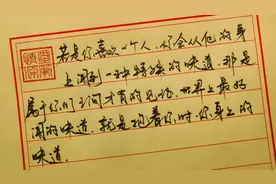 若是你喜欢一个人，你会从他的身
上闻到一种特殊的味道，那是
属于你们之间才有的，世界上最好
闻的味道，就是抱着你时，你身上的
味道。